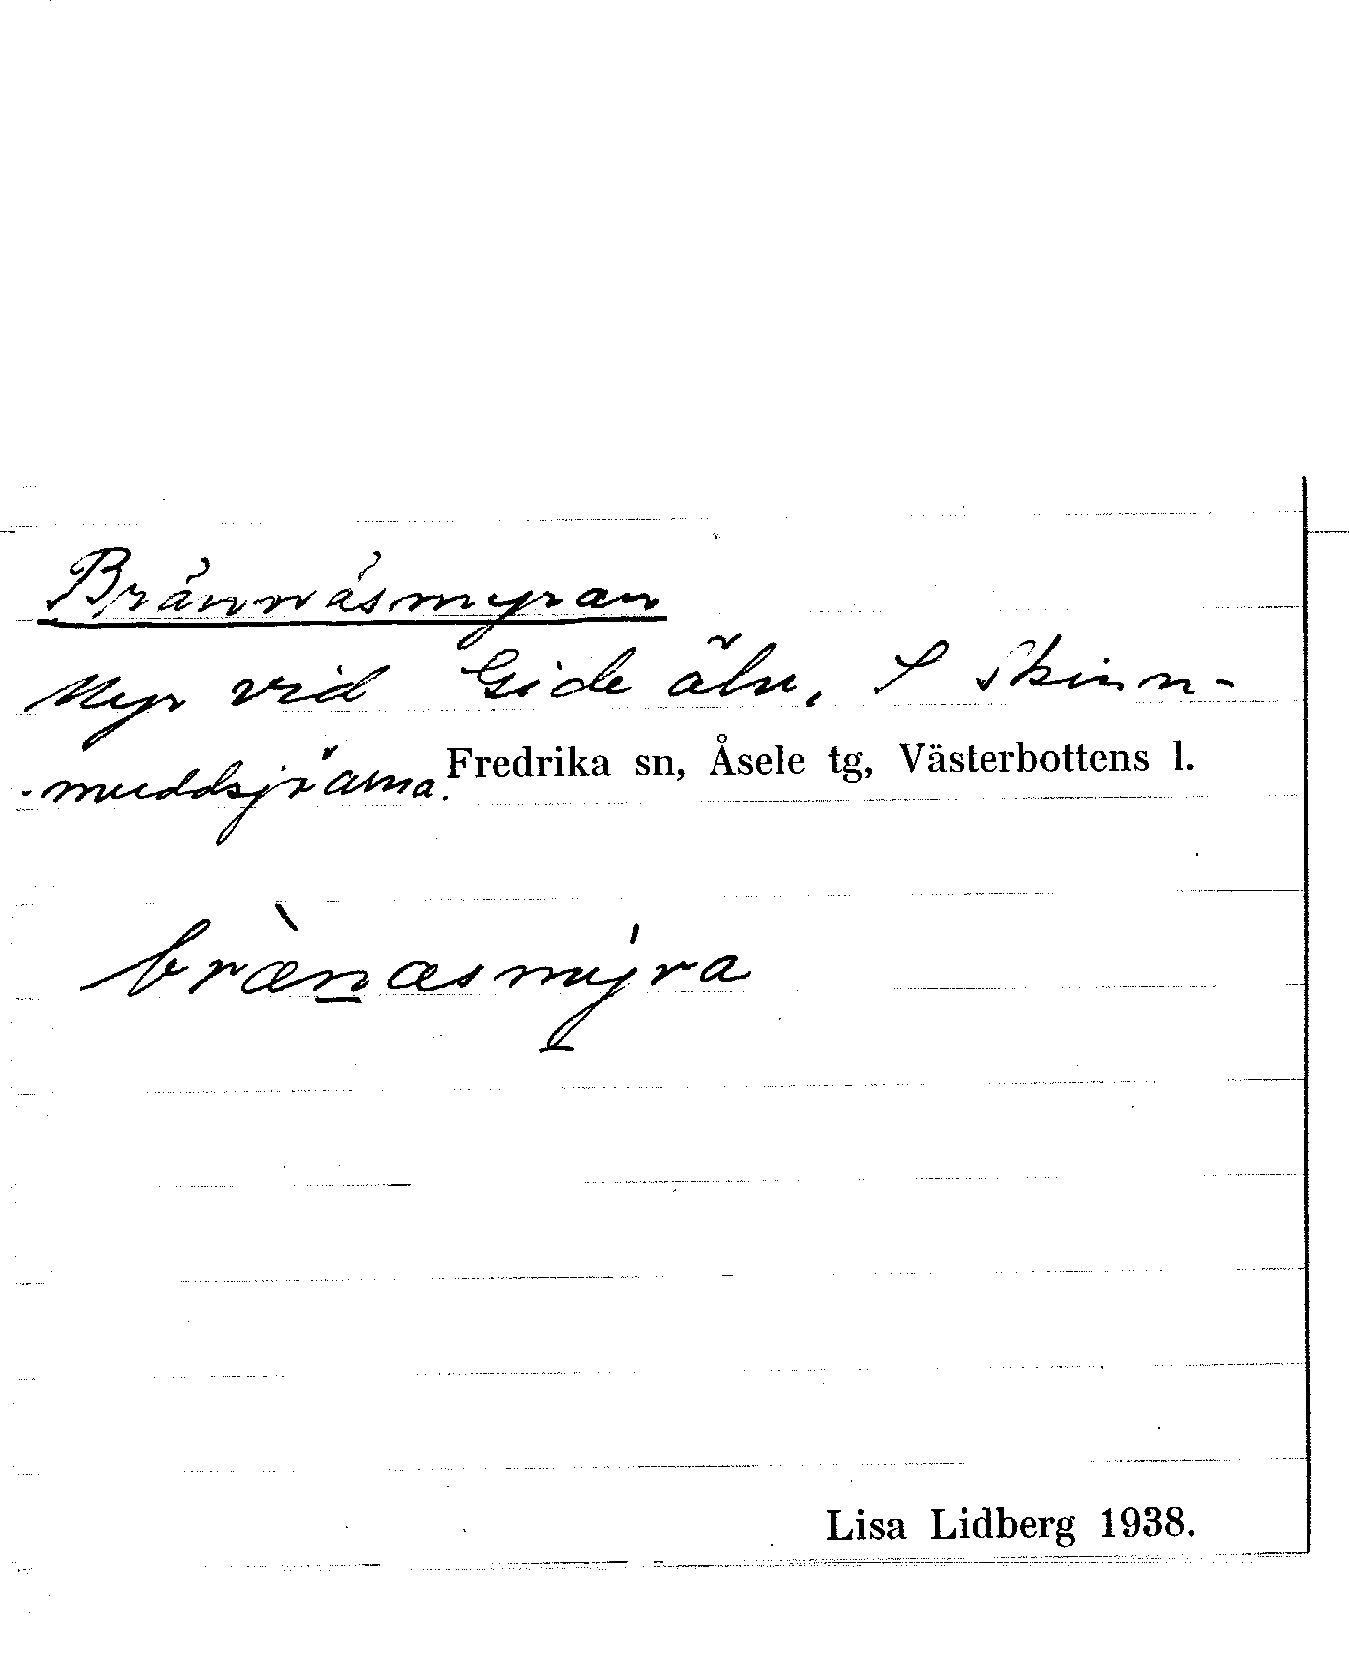 Brännäsmyran
Myr vid Gide älv, S Skinn-
-muddsjöarna. Fredrika sn, Åsele tg, Västerbottens l.
brænæsmyra
Lisa Lidberg 1938.